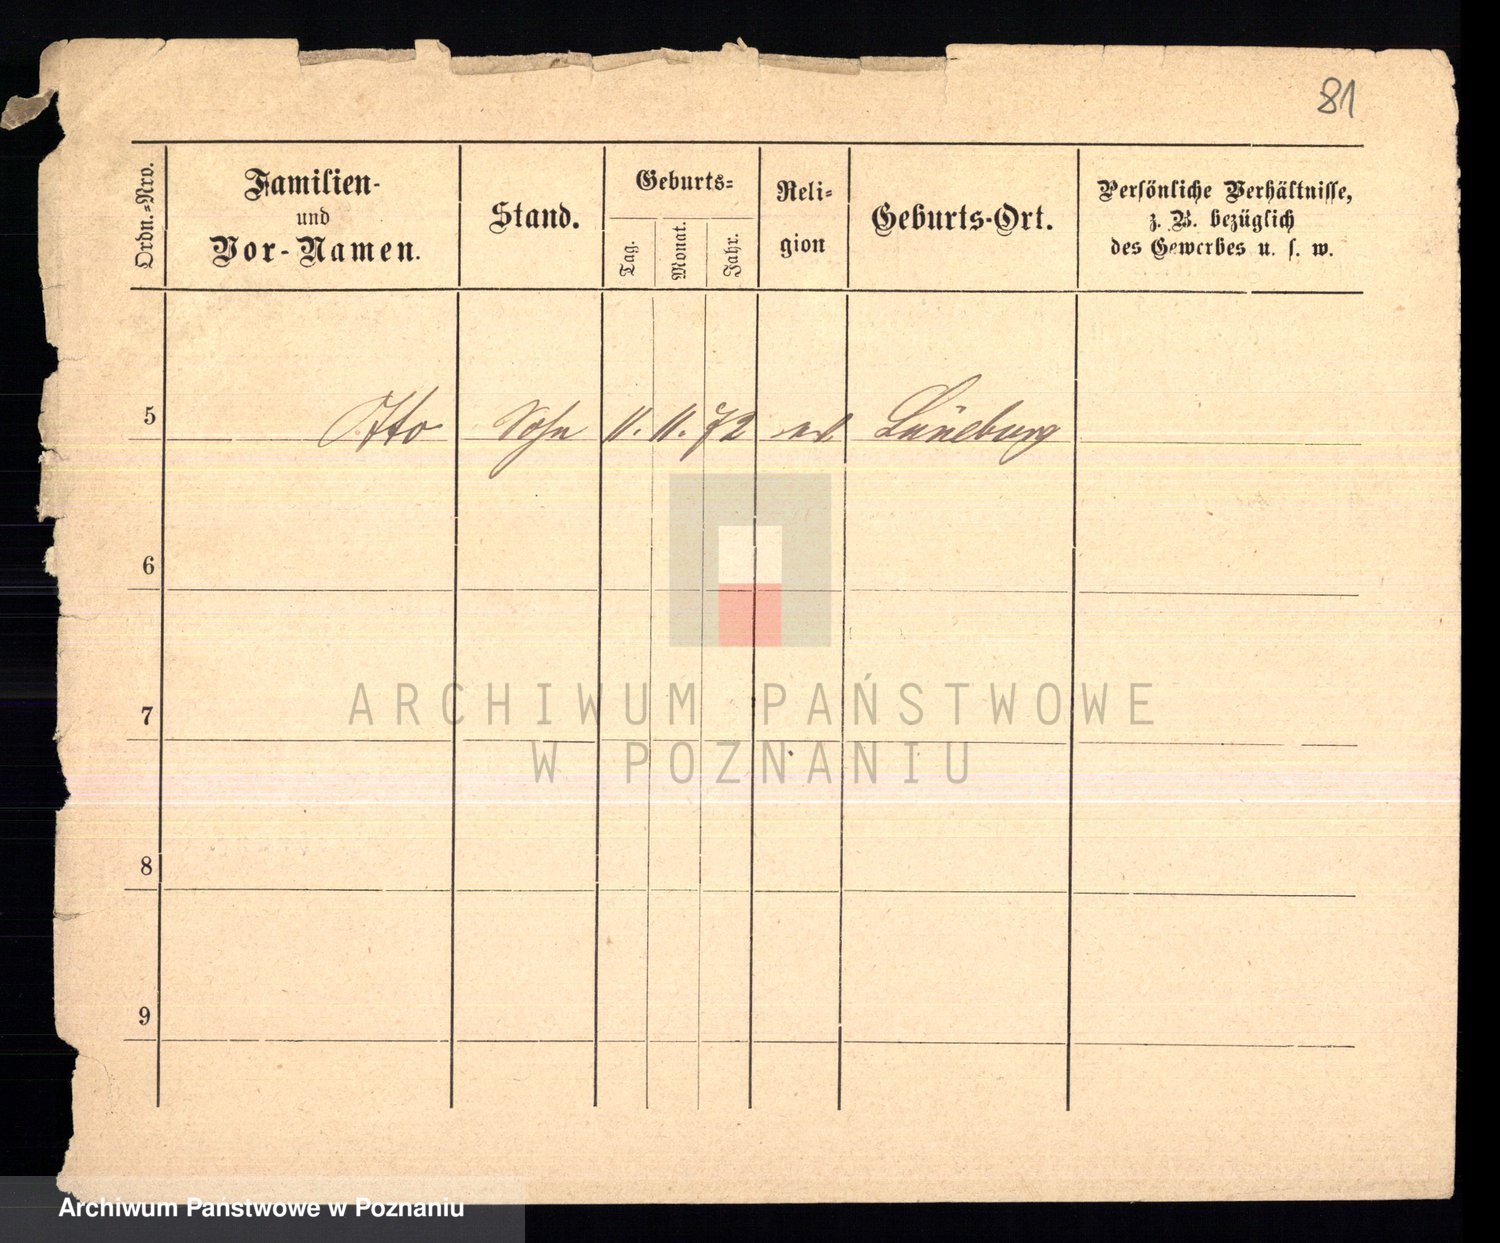 81
Ordn.-Nro.
Familien-
und
Vor-Namen.
Stand.
Geburts-
Tag.
Monat.
Jahr.
Reli-
gion
Geburts-Ort.
Persönliche Verhältnisse,
z. B. bezüglich
des Gewerbes u. s. w.
5 Otto Sohn 11. 11. 72 Lüneburg
6
7
8
9
ARCHIWUM PAŃSTWOWE
W POZNANIU
Archiwum Państwowe w Poznaniu